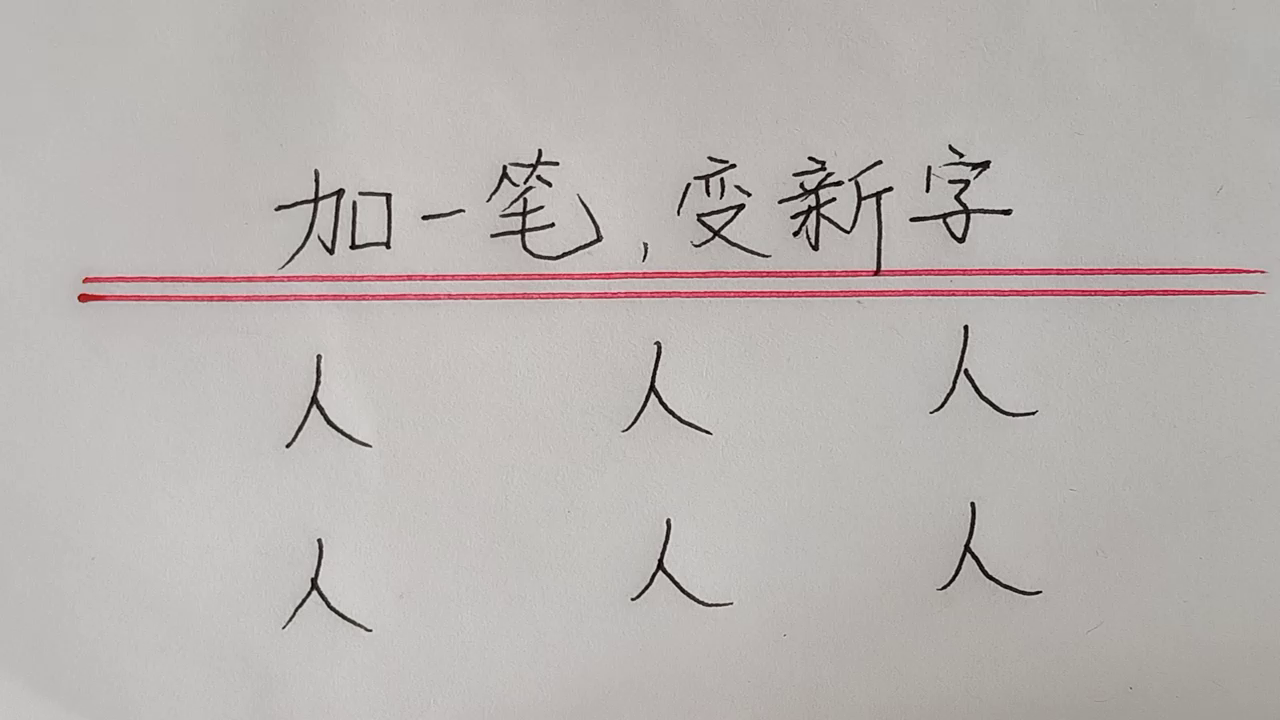 加一笔,变新字
人 人 人
人 人 人